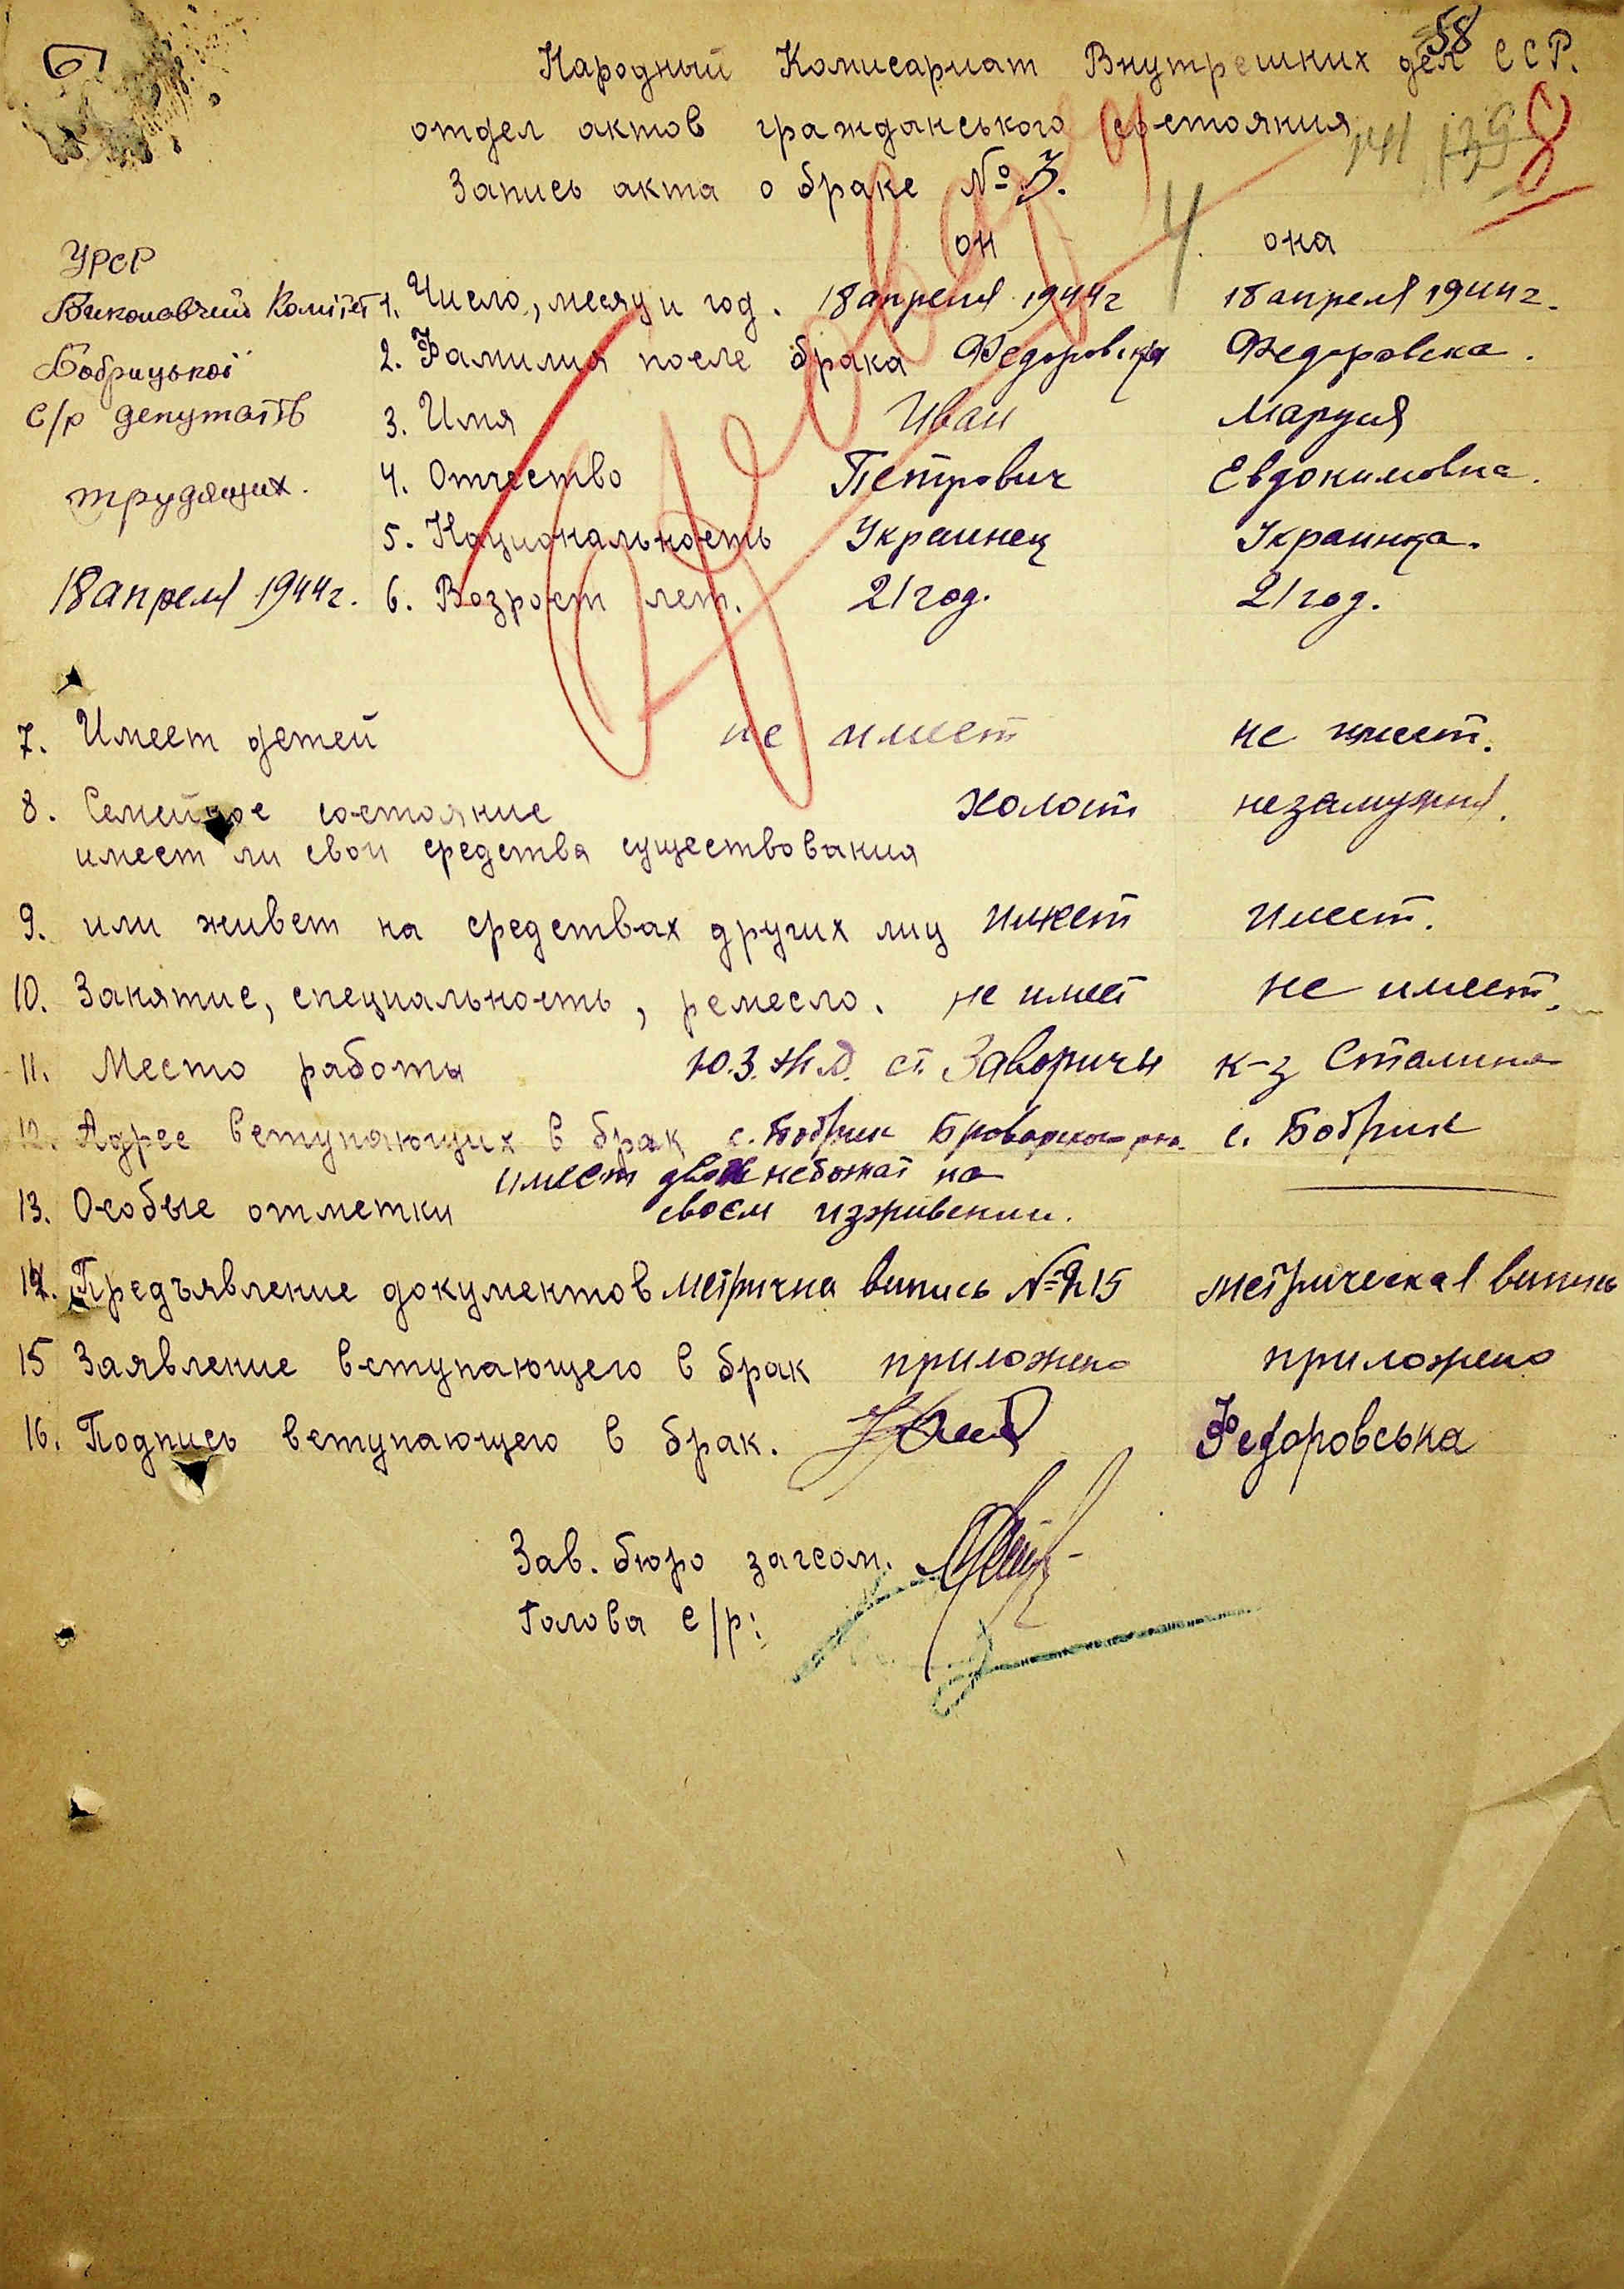 58
Народный Комисариат Внутрешних дел ССР.
отдел актов гражданського состояния
141 139 8
Запись акта о браке № 3.
4
он она
УРСР
Виконавчий Комітет
Бобрицької
с/р депутатів
трудящих.
18 апреля 1944 г.
1. Число, месяц и год. 18 апреля 1944 г 18 апреля 1944 г.
2. Фамилия после брака Федоровский Федоровска.
3. Имя Иван Маруся
4. Отчество Петрович Евдокимовна.
5. Национальность Украинец Украинца.
6. Возраст лет. 21 год. 21 год.
7. Имеет детей не имеет не имеет.
8. Семейное состояние холост незамужня.
имеет ли свои средства существования
9. или живет на средствах других лиц имеет имеет.
10. Занятие, специальность, ремесло. не имеет не имеет.
11. Место работы Ю.З.Ж.Д. ст. Заворичи к-з Сталина
12. Адрес вступающих в брак с. Бобрик Броварского р-на с. Бобрик
13. Особые отметки имеет двои небожат на
своем изживении.
14. Предъявление документов метрична випись № 215 метрическая випись
15 Заявление вступающего в брак приложено приложено
16. Подпись вступающего в брак. Федоровська
Зав. бюро загсом.
Голова с/р: